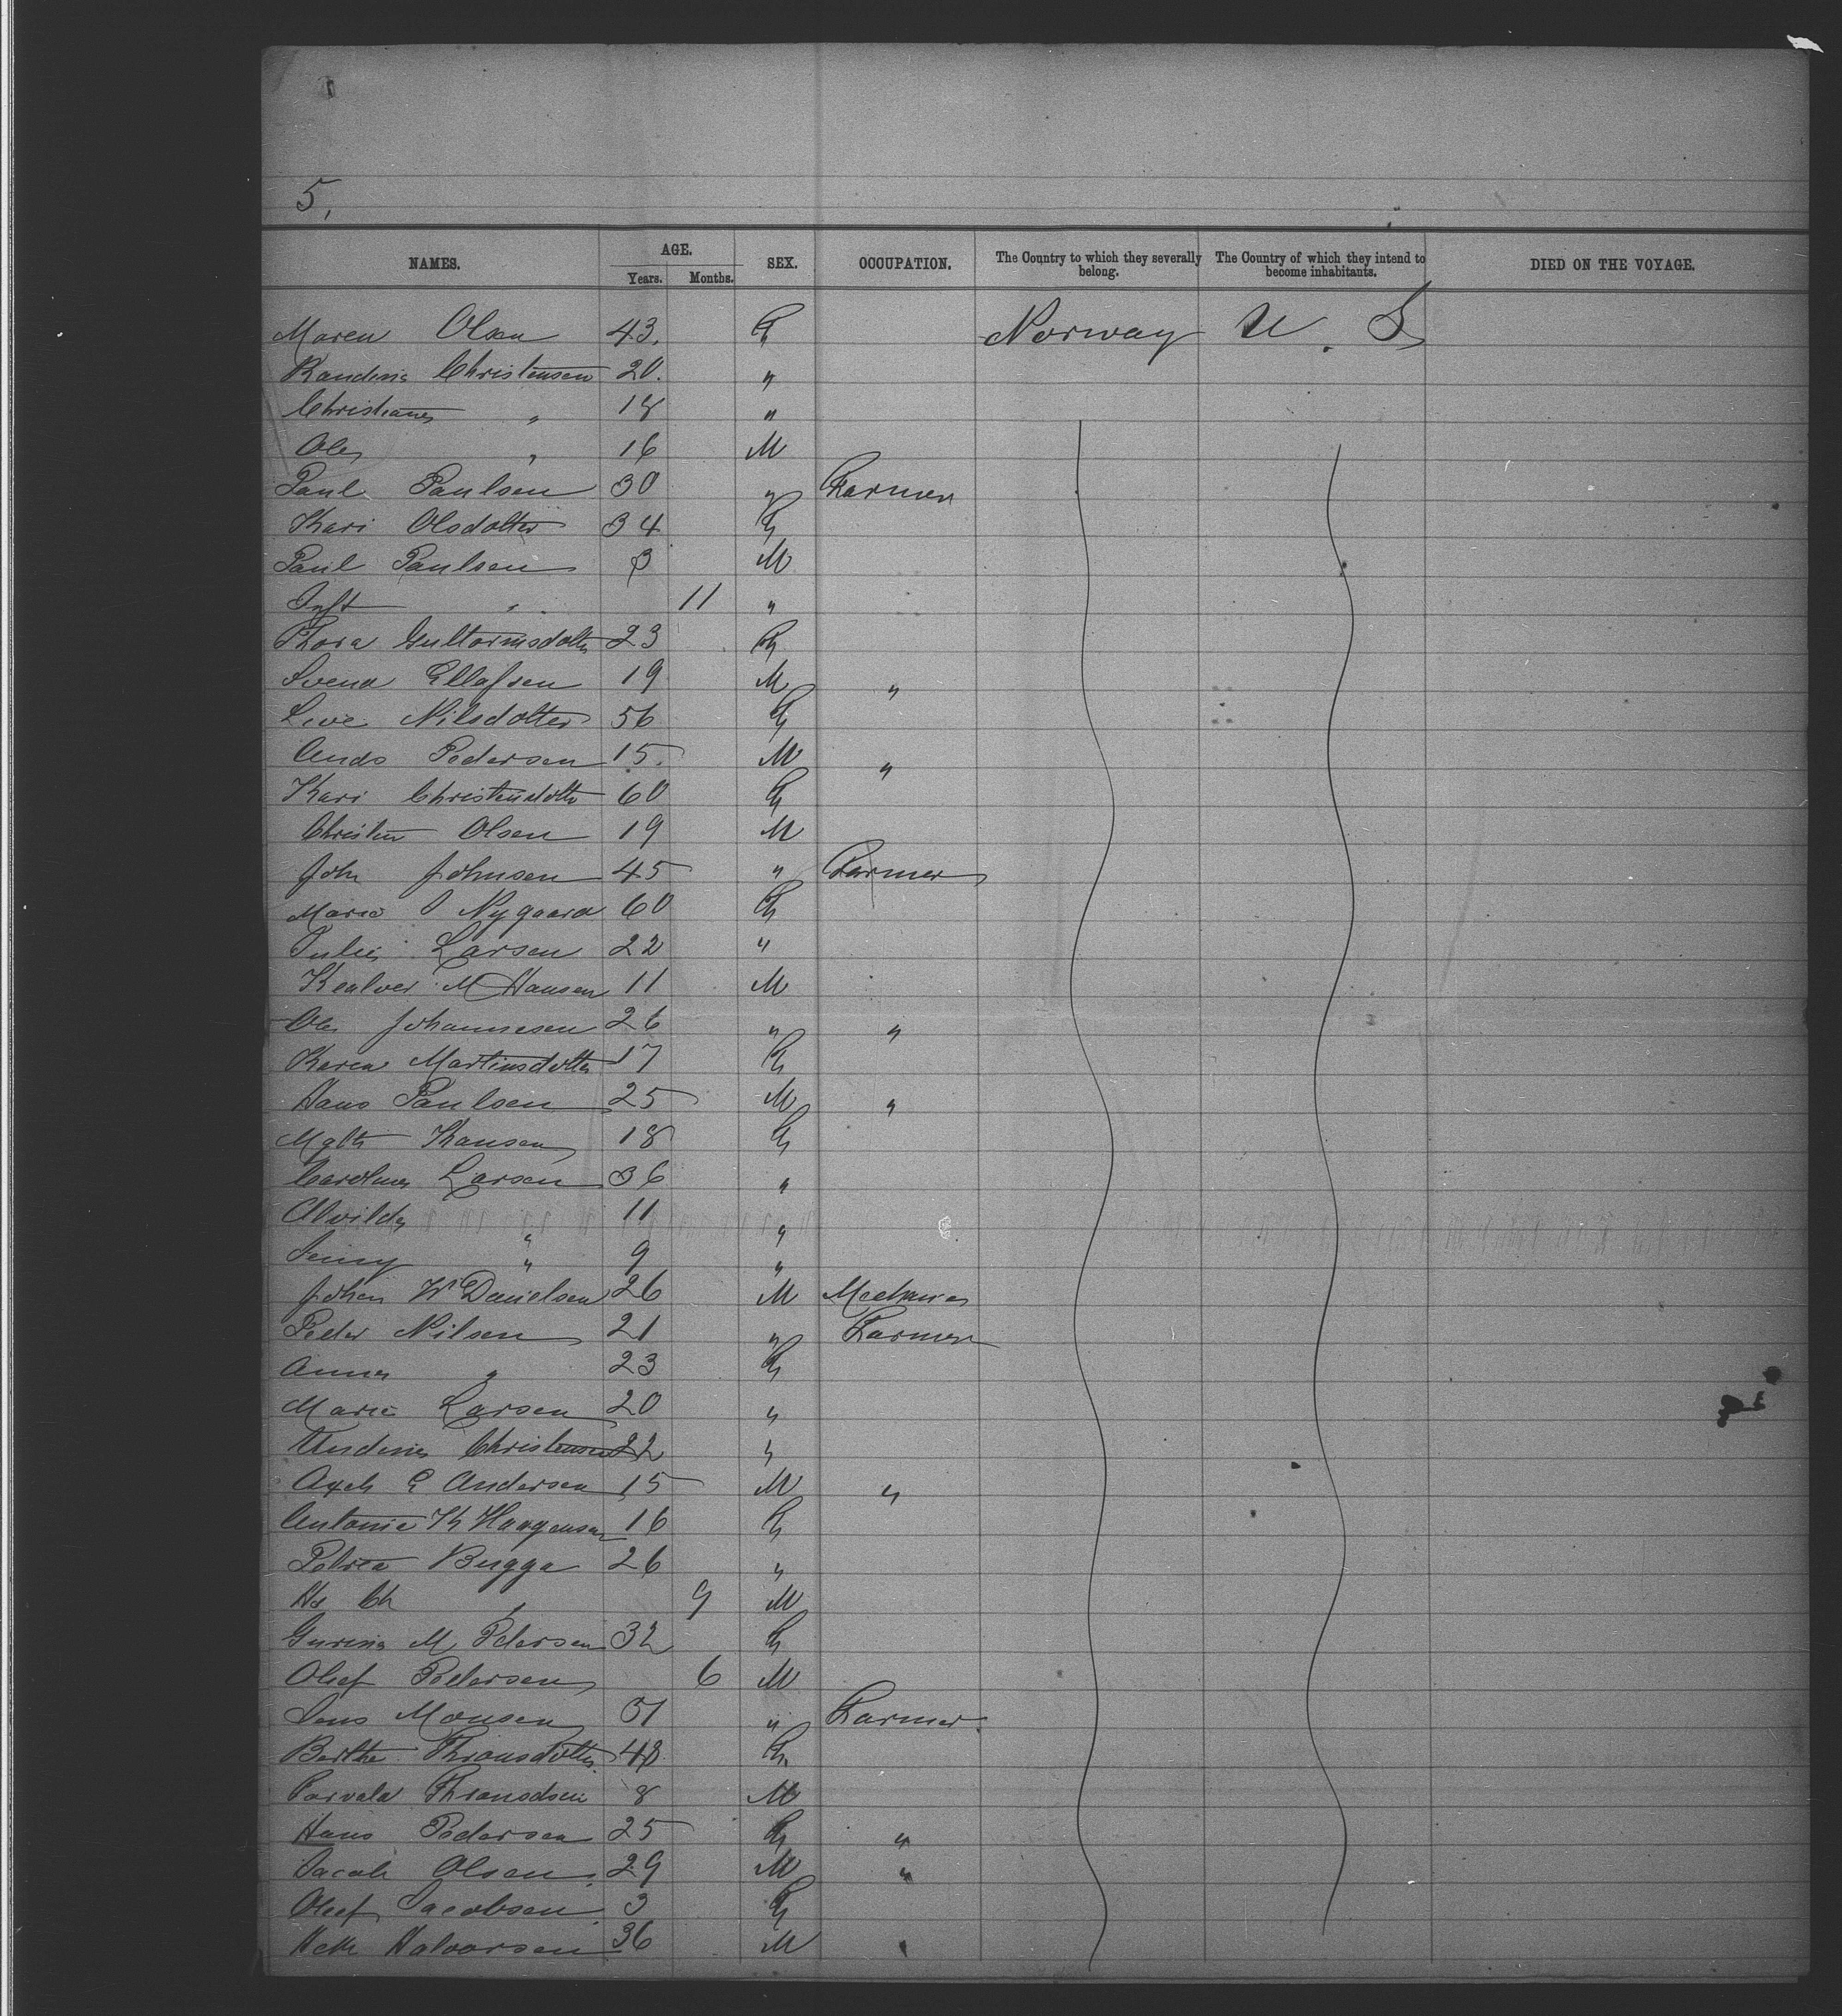 5.
NAMES. AGE. Years. Months. SEX. OCCUPATION. The Country to which they severally belong. The Country of which they intend to become inhabitants. DIED ON THE VOYAGE.
Maren Olsen 43. F Norway U. S
Randina Christensen 20. "
Christiane " 18 "
Ole " 16 M
Paul Paulsen 30 " Farmer
Kari Olsdotter 34 F
Paul Paulsen 3 M
Inft " 11 "
Thora Guttormsdotter 23 F
Svend Ellefsen 19 M "
Live Nilsdotter 56 F
Ands Pedersen 15. M "
Kari Christensdottr 60 F
Christen Olsen 19 M
John Johnsen 45 " Farmer
Marie Nygaard 60 F
Julie Larsen 22 "
M Hansen 11 M
Ole Johannesen 26 " "
Karen Martinsdotter 17 F
Hans Paulsen 25 M "
Hansen 18 F
Caroline Larsen 36 "
Alvilda " 11 "
Jenny " 9 "
Johan W Danielsen 26 M Mechanic
Peder Nilsen 21 " Farmer
Anna " 23 F
Marie Larsen 20 "
Andina Christensen 22 "
Axel E Andersen 15 M "
Antonie K Haagensen 16 F
Petrea Bugge 26 "
Hs Ch " 9 M
Gurina M Pedersen 32 F
Olef Pedersen 6 M
Jens Monsen 31 " Farmer.
Berthe Thronsdotter 43 F
Torvald Thronsdsen 8 M
Hans Pedersen 25 F "
Jacob Olsen 29 M "
Olef Jacobsen 3 F
Halvorsen 36 M "